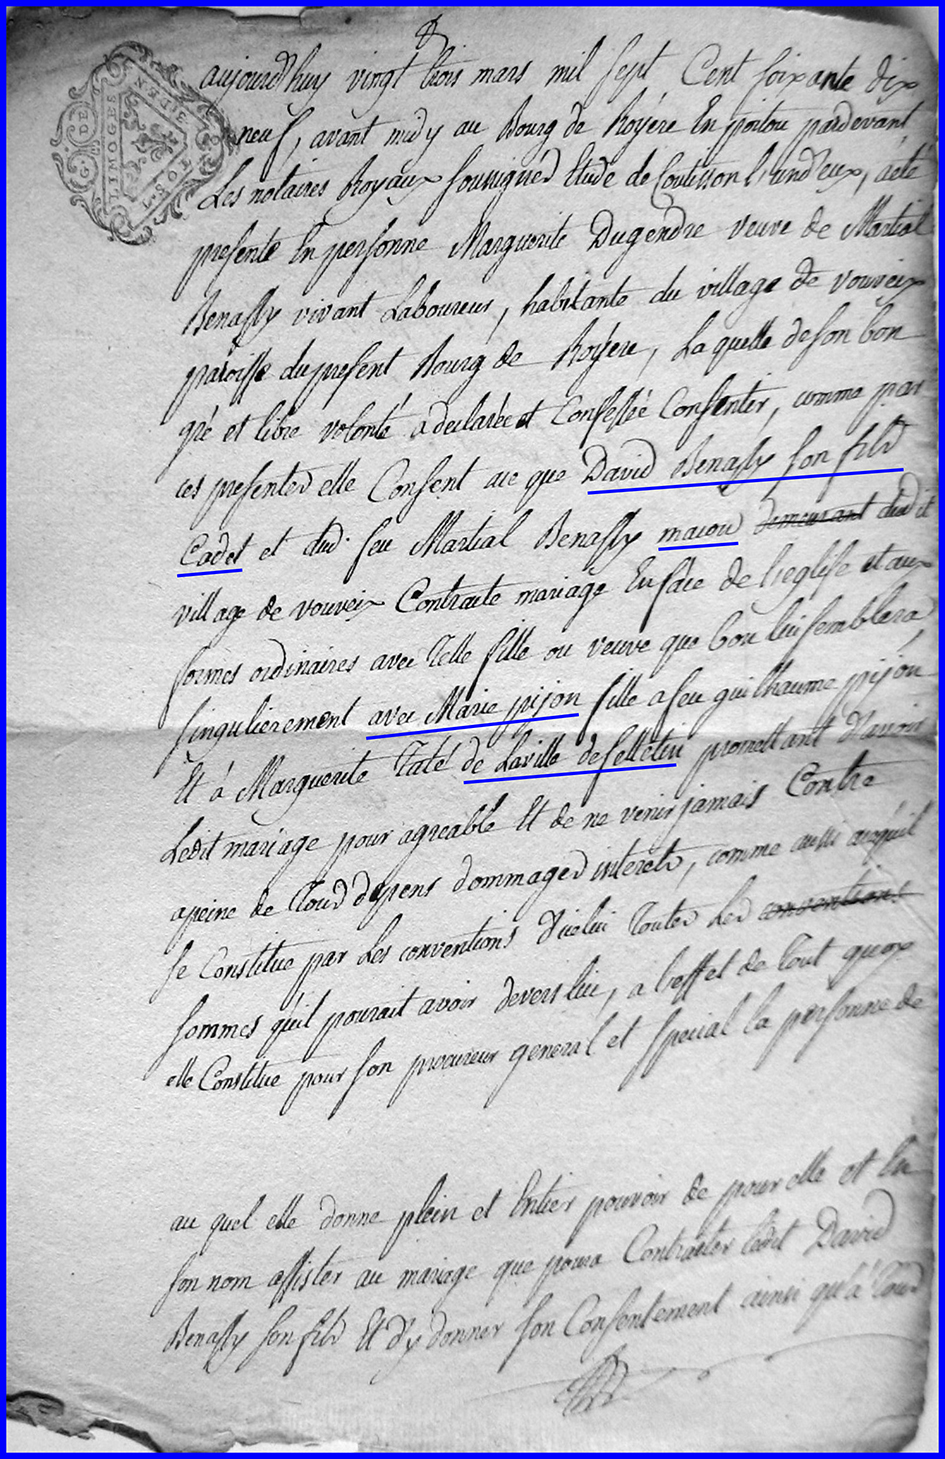 G. DE
LIMOGES
aujourd'huy vingt trois mars mil sept Cent soixante dix
neuf, avant midy au Bourg de Royére En poitou pardevant
Les notaires Royaux soussignéd Etude de Coutisson l'und'eux, aeté
presente En personne Marguerite Dugendre veuve de Martial
Benassy vivant Laboureur, habitante du village de vouveix
paroisse du present Bourg de Royére, La quelle de son bon
gré et libre volonté a declarée et Confessée Consentir, comme par
ces presentes elle Consent ace que David Benassy son fils
Cadet et dud. feu Martial Benassy macon demeurant dud it
village de vouveix Contracte mariage En face de l'eglise et aux
formes ordinaires avec Telle fille ou veuve que bon lui semblera
singulierement avec Marie pijon fille a feu guilhaume pijon
Et à Marguerite Taté de Laville defelletin promettant D'avoir
Ledit mariage pour agreable Et de ne venir jamais Contre
apeine de Tous depens dommages interets, comme aussi
se Constitue par Les conventions D'icelui Toutes Les conventions
sommes qu'il pourait avoir devers lui, a l'effet de Tout quoy
elle Constitue pour son procureur general et special la personne de
au quel elle donne plein et Entier pouvoir de pour elle et En
son nom assister au mariage que poura Contracter ledit David
Benassy son fils Et d'y donner son Consentement ainsi qu'à Tous